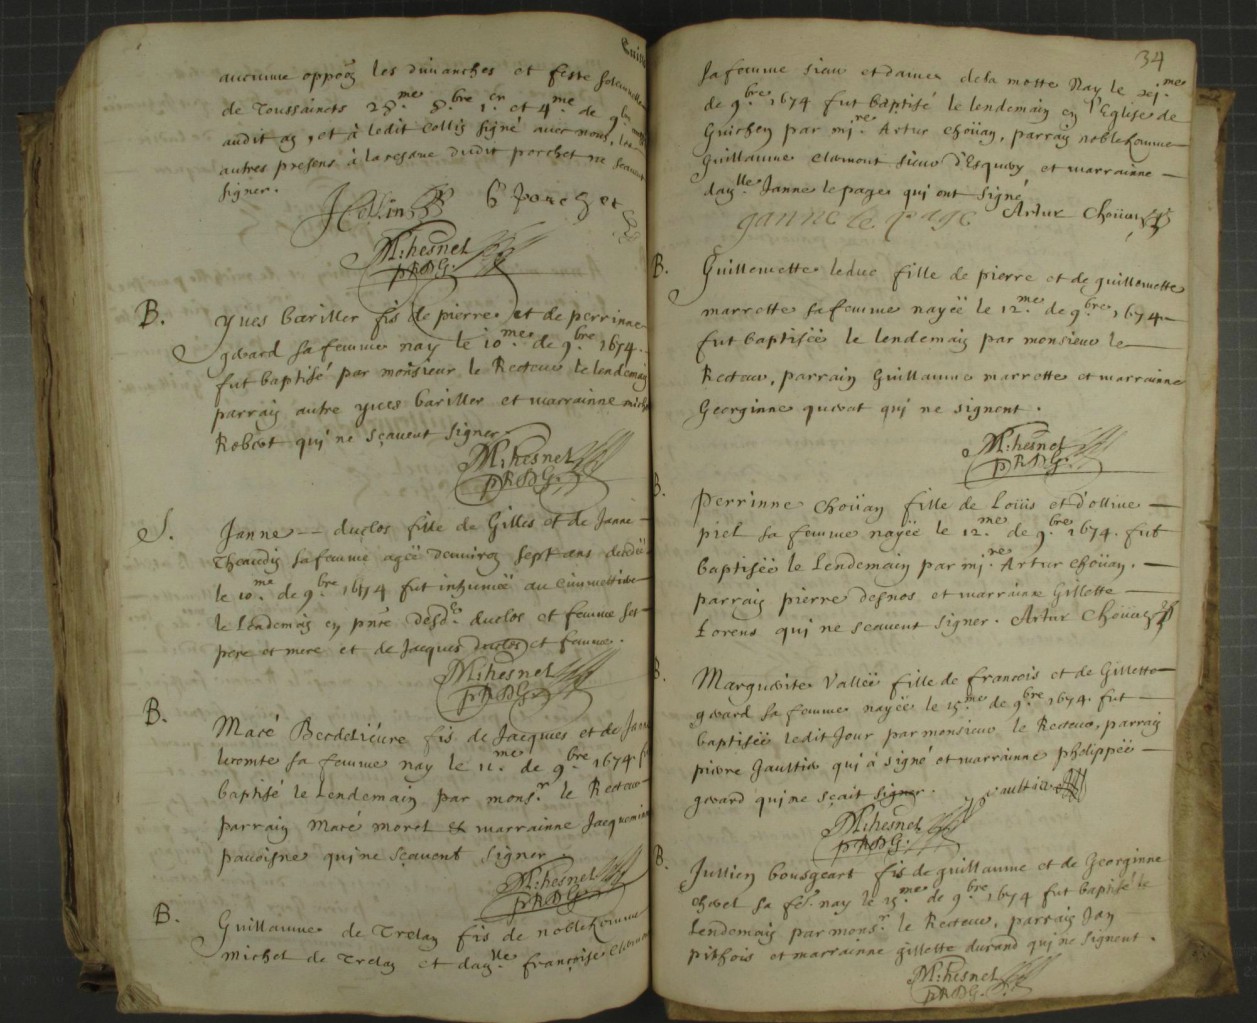 aucune oppoõn les dimanches et feste solemnelle
de Toussaincts 28.me 8.bre 1.er et 4.me de 9.bre
audit an, et à ledit Collin signé avec nous, les
autres presens à la reserve dudit porchet ne scavent
signer.
JCollin G Porchet
M: hesnel
pRDG.
B.
Yves bariller fis de pierre et de perrinne
gerard sa femme nay le 10.me de 9.bre 1674.
fut baptisé par monsieur le Recteur le lendemain
parrain autre yves bariller et marrainne
Robert qui ne scavent signer
M: hesnel
pRDG.
S.
Janne -- duclos fille de Gilles et de Janne
sa femme agée d'environ sept ans
le 10.me de 9.bre 1674 fut inhumée au cimmetiere
le lendemain en pñce desd. duclos et femme ses
pere et mere et de Jacques duclos et femme.
M: hesnel
pRDG.
B.
Macé Berdeliére fis de Jacques et de
lecomte sa femme nay le 11.me de 9.bre 1674
baptisé le Lendemain par mons.r le Recteur
parrain Macé morel & marrainne Jacquemine
qui ne scavent signer
M: hesnel
pRDG.
B.
Guillaume de Trelan fis de noble homme
michel de Trelan et dam.lle françoise
34
sa femme sieur et dame de la motte Nay le
de 9.bre 1674 fut baptisé le lendemain en l'Eglise de
Guichen par mi.re Artur Choüan, parrain noble homme
Guillaume sieur d'Esquay et marrainne
dam.lle Janne le page qui ont signé
ganne le page Artur Choüan
B.
Guillemette leduc fille de pierre et de guillemette
marrette sa femme nayëe le 12.me de 9.bre 1674.
fut baptisée le lendemain par monsieur le
Recteur, parrain Guillaume marrette et marrainne
Georginne querat qui ne signent.
M: hesnel
pRDG.
B.
Perrinne Choüan fille de Loüis et d'ollive
piel sa femme nayëe le 12.me de 9.bre 1674. fut
baptisée le Lendemain par mi.re Artur Choüan.
parrain pierre desnos et marrainne Gillette
Lorens qui ne scavent signer. Artur Choüan
B.
Marguerite Vallée fille de francois et de Gillette
gerard sa femme nayée le 15.me de 9.bre 1674. fut
baptisée ledit Jour par monsieur le Recteur, parrain
pierre Gaultier qui à signé et marrainne philippëe
gerard qui ne sçait signer. p gaultier
M: hesnel
pRDG.
B.
Jullien bousgeart fis de guillaume et de Georginne
sa fe. nay le 15.me de 9.bre 1674 fut baptisé le
Lendemain par mons.r le Recteur, parrain Jan
pithois et marrainne gillette durand qui ne signent.
M: hesnel
pRDG.